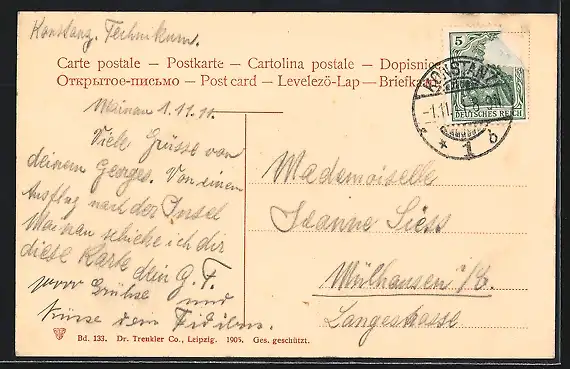 Konstanz. Technikum.
Carte postale – Postkarte – Cartolina postale – Dopisnice
Открытое-письмо – Post card – Levelező-Lap – Briefka
5
DEUTSCHES REICH
KONSTANZ
* 1 b
Mainau 1.11.11.
Viele Grüsse von
deinem Georges. Von einem
Ausflug nach der Insel
Mainau schicke ich dir
diese Karte dein G. F.
Grüsse und
Küsse dem
Mademoiselle
Jeanne Siess
Mülhausen i/E.
Langestrasse
Bd. 133. Dr. Trenkler Co., Leipzig. 1905. Ges. geschützt.